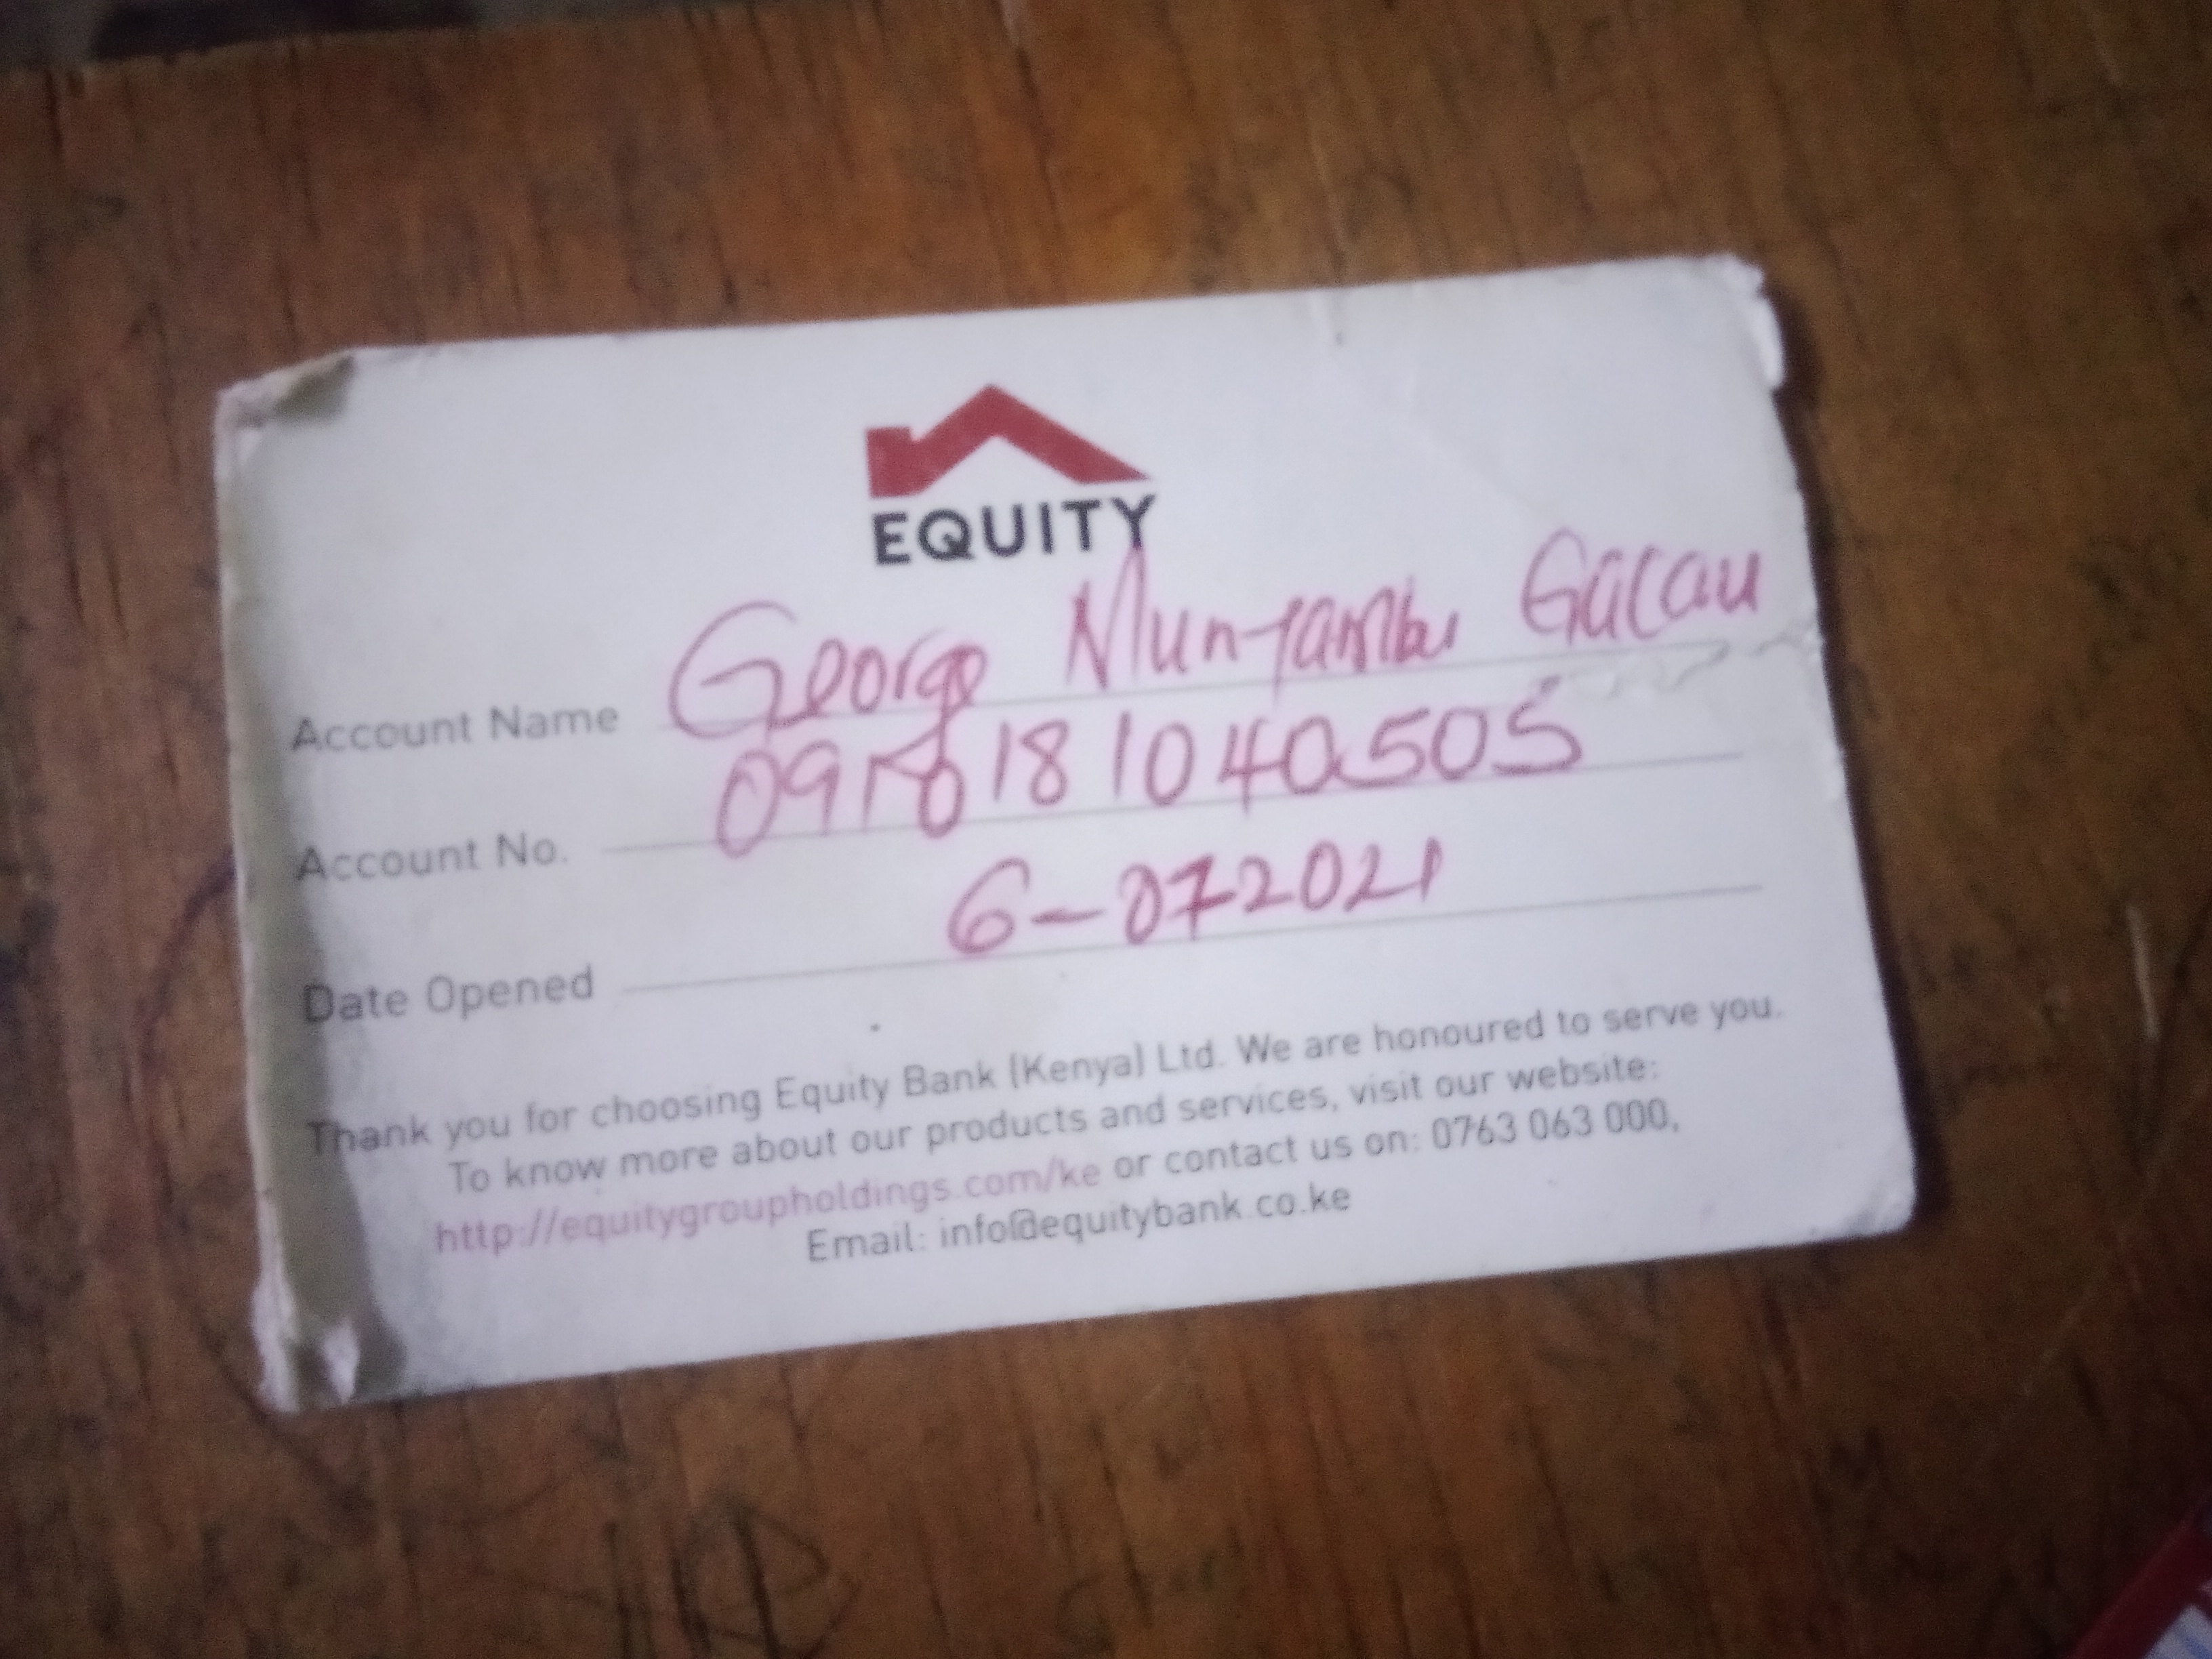 EQUITY
Account Name George Munyambu Gacau
Account No. 0910181040505
Date Opened 6-072021
Thank you for choosing Equity Bank (Kenya) Ltd. We are honoured to serve you.
To know more about our products and services, visit our website:
http://equitygroupholdings.com/ke or contact us on: 0763 063 000,
Email: info@equitybank.co.ke